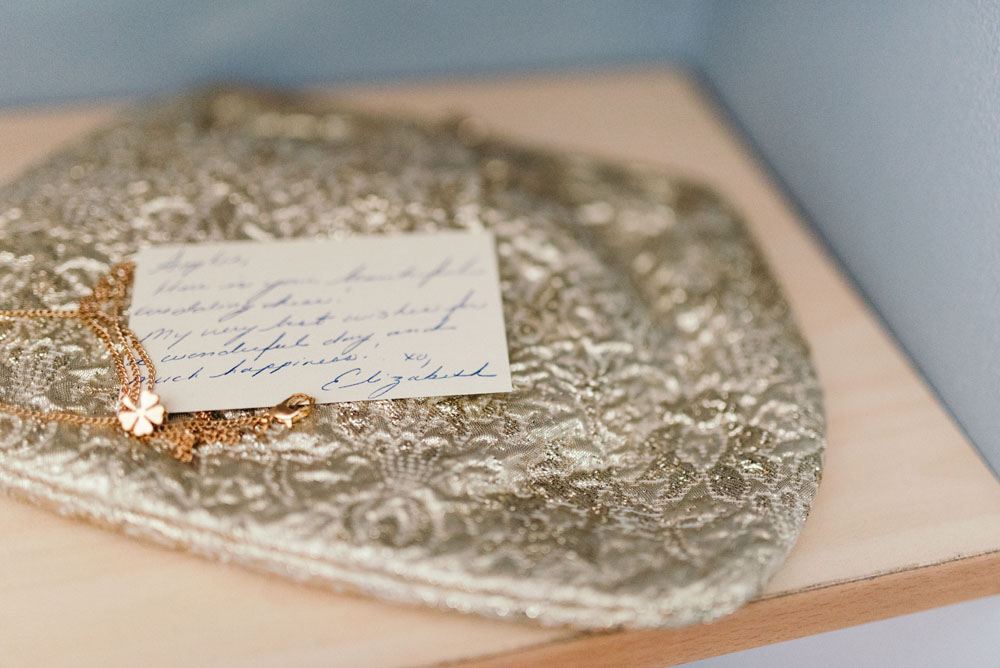 Here is your beautiful
wedding dress!
My very best wishes for
a wonderful day, and
much happiness! xo,
Elizabeth